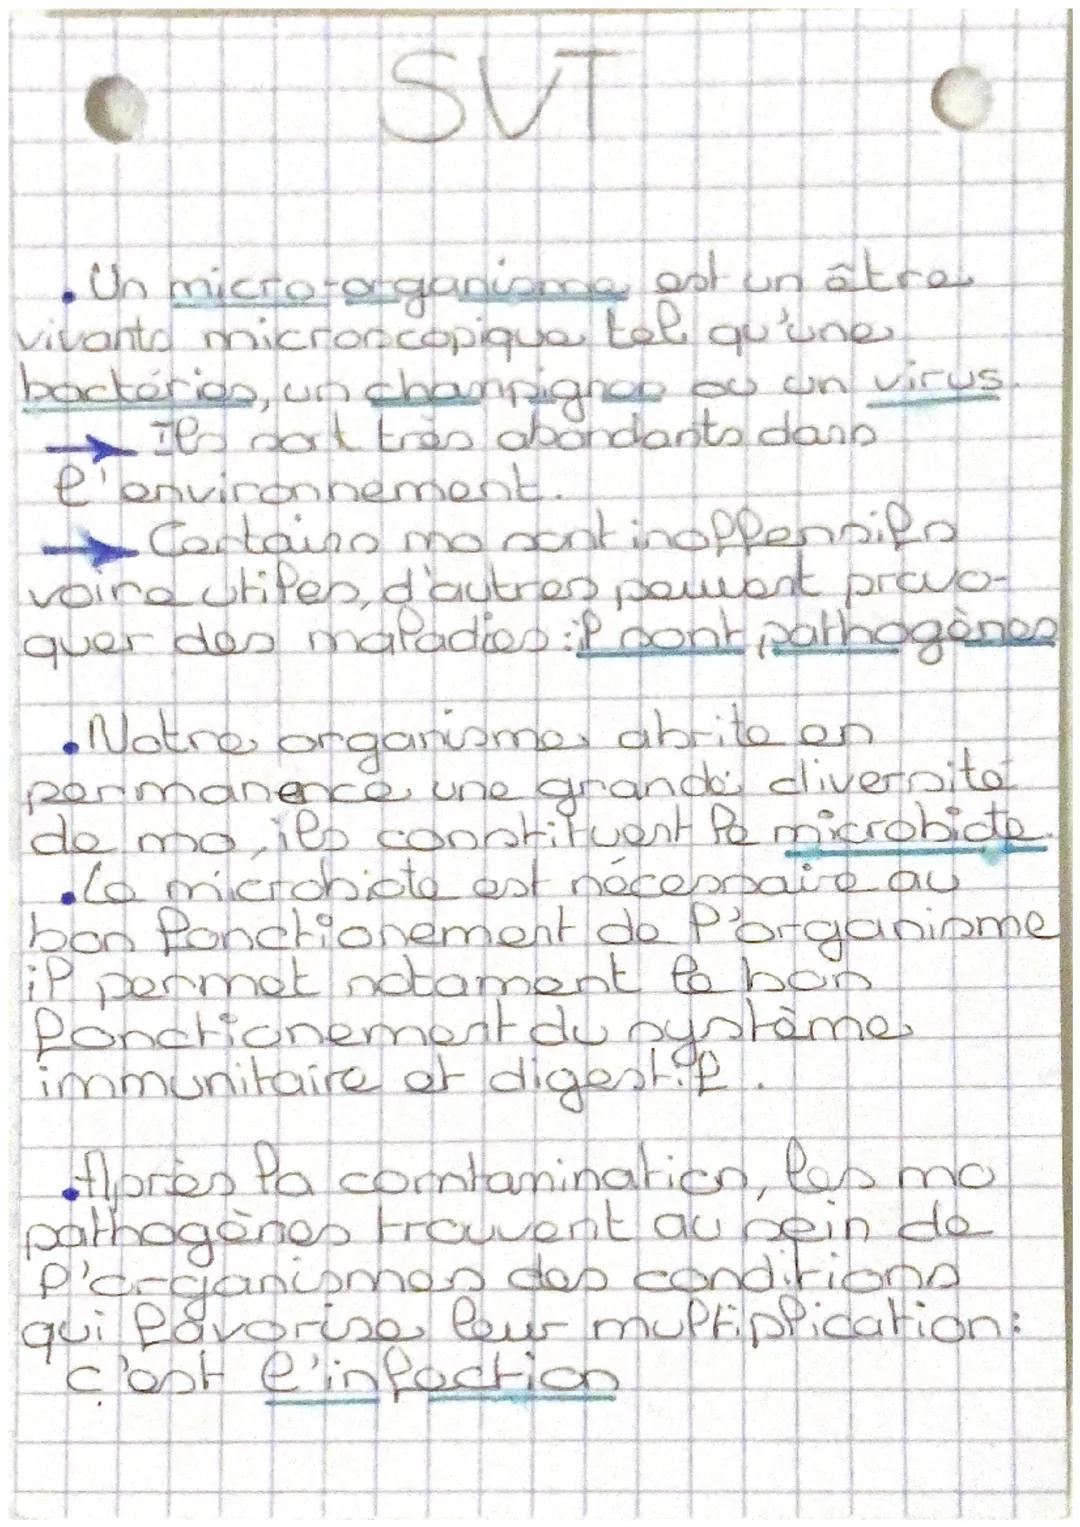 SVT
. Un micro-organisme est un être
vivants microscopique tel qu'une
bactéries, un champignon ou un virus.
→ Ils sont très abondants dans
l'environnement.
→ Certains mo sont inoffensifs
voire utiles, d'autres peuvent provo-
quer des maladies : il sont pathogènes
. Notre organisme abrite en
permanence une grande diversité
de mo, ils constituent le microbiote.
. Le microbiote est nécessaire au
bon fonctionement de l'organisme
il permet notament le bon
fonctionement du système
immunitaire et digestif.
. Après la comtamination, les mo
pathogènes trouvent au sein de
l'organismes des conditions
qui favorise leur multiplication :
c'est l'infection